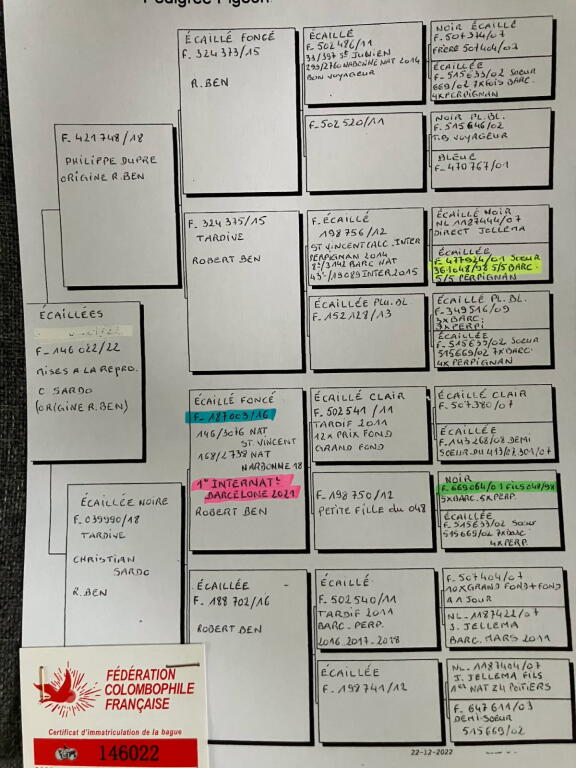 Pedigree Pigeon
ÉCAILLÉES
F-146022/22
MISES A LA REPRO.
C SARDO
(ORIGINE R.BEN)
F-421748/18
PHILIPPE DUPRE
ORIGINE R.BEN
ÉCAILLÉE NOIRE
F-039990/18
TARDIVE
CHRISTIAN
SARDO
R.BEN
ÉCAILLÉ FONCÉ
F-324373/15
R.BEN
F-324375/15
TARDIVE
ROBERT BEN
ÉCAILLÉ FONCÉ
F-187003/16
146/3076 NAT
ST.VINCENT
168/2738 NAT
NARBONNE 18
1er INTERNATL
BARCELONE 2021
ROBERT BEN
ÉCAILLÉE
F-188702/16
ROBERT BEN
ÉCAILLÉ
F-502486/11
33/397 ST JUNIEN
293/2760 NARBONNE NAT 2014
BON VOYAGEUR
F-502520/11
F-ÉCAILLÉ
198756/12
ST VINCENT CALC. INTER
PERPIGNAN 2014
8e/3142 BARC NAT
43e-19089 INTER 2015
ÉCAILLÉE PLU.BL
F-152128/13
ÉCAILLÉ CLAIR
F-502541/11
TARDIF 2011
12x PRIX FOND
GRAND FOND
F-198750/12
PETITE FILLE DU 048
ÉCAILLÉ
F-502540/11
TARDIF 2011
BARC-PERP.
2016.2017-2018
ÉCAILLÉE
F-198741/12
NOIR ÉCAILLÉ
F-507374/07
FRÈRE 507404/07
ÉCAILLÉE
F-515633/02 SOEUR
669/02 7xFOIS BARC.
4xPERPIGNAN
NOIR PL.BL.
F-515646/02
T.B VOYAGEUR
BLEUE
F-470767/01
ÉCAILLÉ NOIR
NL 1187444/07
DIRECT JELLEMA
ÉCAILLÉE
F-477924/01 SOEUR
361048/98 5/5 BARC-
5/5 PERPIGNAN
ÉCAILLÉ PL.BL.
F-349516/09
3xBARC.
3xPERPI
ÉCAILLÉE
F-515633/02 SOEUR
515669/02 7xBARC.
4x PERPIGNAN
ÉCAILLÉ CLAIR
F-507380/07
ÉCAILLÉE
F-143268/08 DEMI
SOEUR DU 413/02 301/07
NOIR
F-669064/01 FILS 048/98
5xBARC.5xPERP.
ÉCAILLÉE
F-515633/02 SOEUR
515669/02 7xBARC
4xPERP.
F-507404/07
10xGRAND FOND+FOND
A 1 JOUR
NL-1187422/07
J. JELLEMA
BARC. MARS 2011
NL-1187404/07
J. JELLEMA FILS
1er NAT Z4 POITIERS
F-647611/03
DEMI-SOEUR
515669/02
FÉDÉRATION
COLOMBOPHILE
FRANÇAISE
Certificat d'immatriculation de la bague
146022
22-12-2022